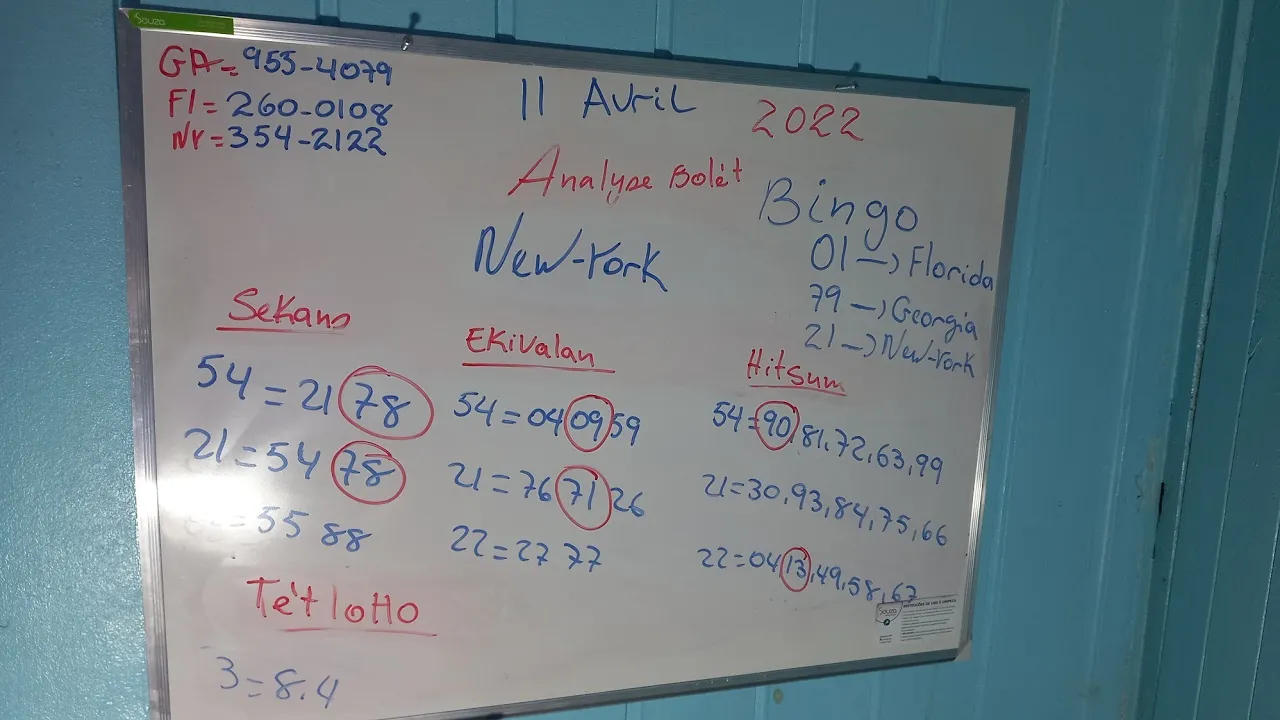 Souza
GA=955-4079
Fl=260-0108
NY=354-2122
11 Avril 2022
Analyse Bolèt
Bingo
01 → Florida
79 → Georgia
21 → New-York
New-York
Sekans
54=21 78
21=54 78
=55 88
Ekivalan
54=04 09 59
21=76 71 26
22=27 77
Hitsum
54=90,81,72,63,99
21=30,93,84,75,66
22=04,13,49,58,67
Te't lotto
3=8.4
Souza
INSTRUÇÕES DE USO E LIMPEZA